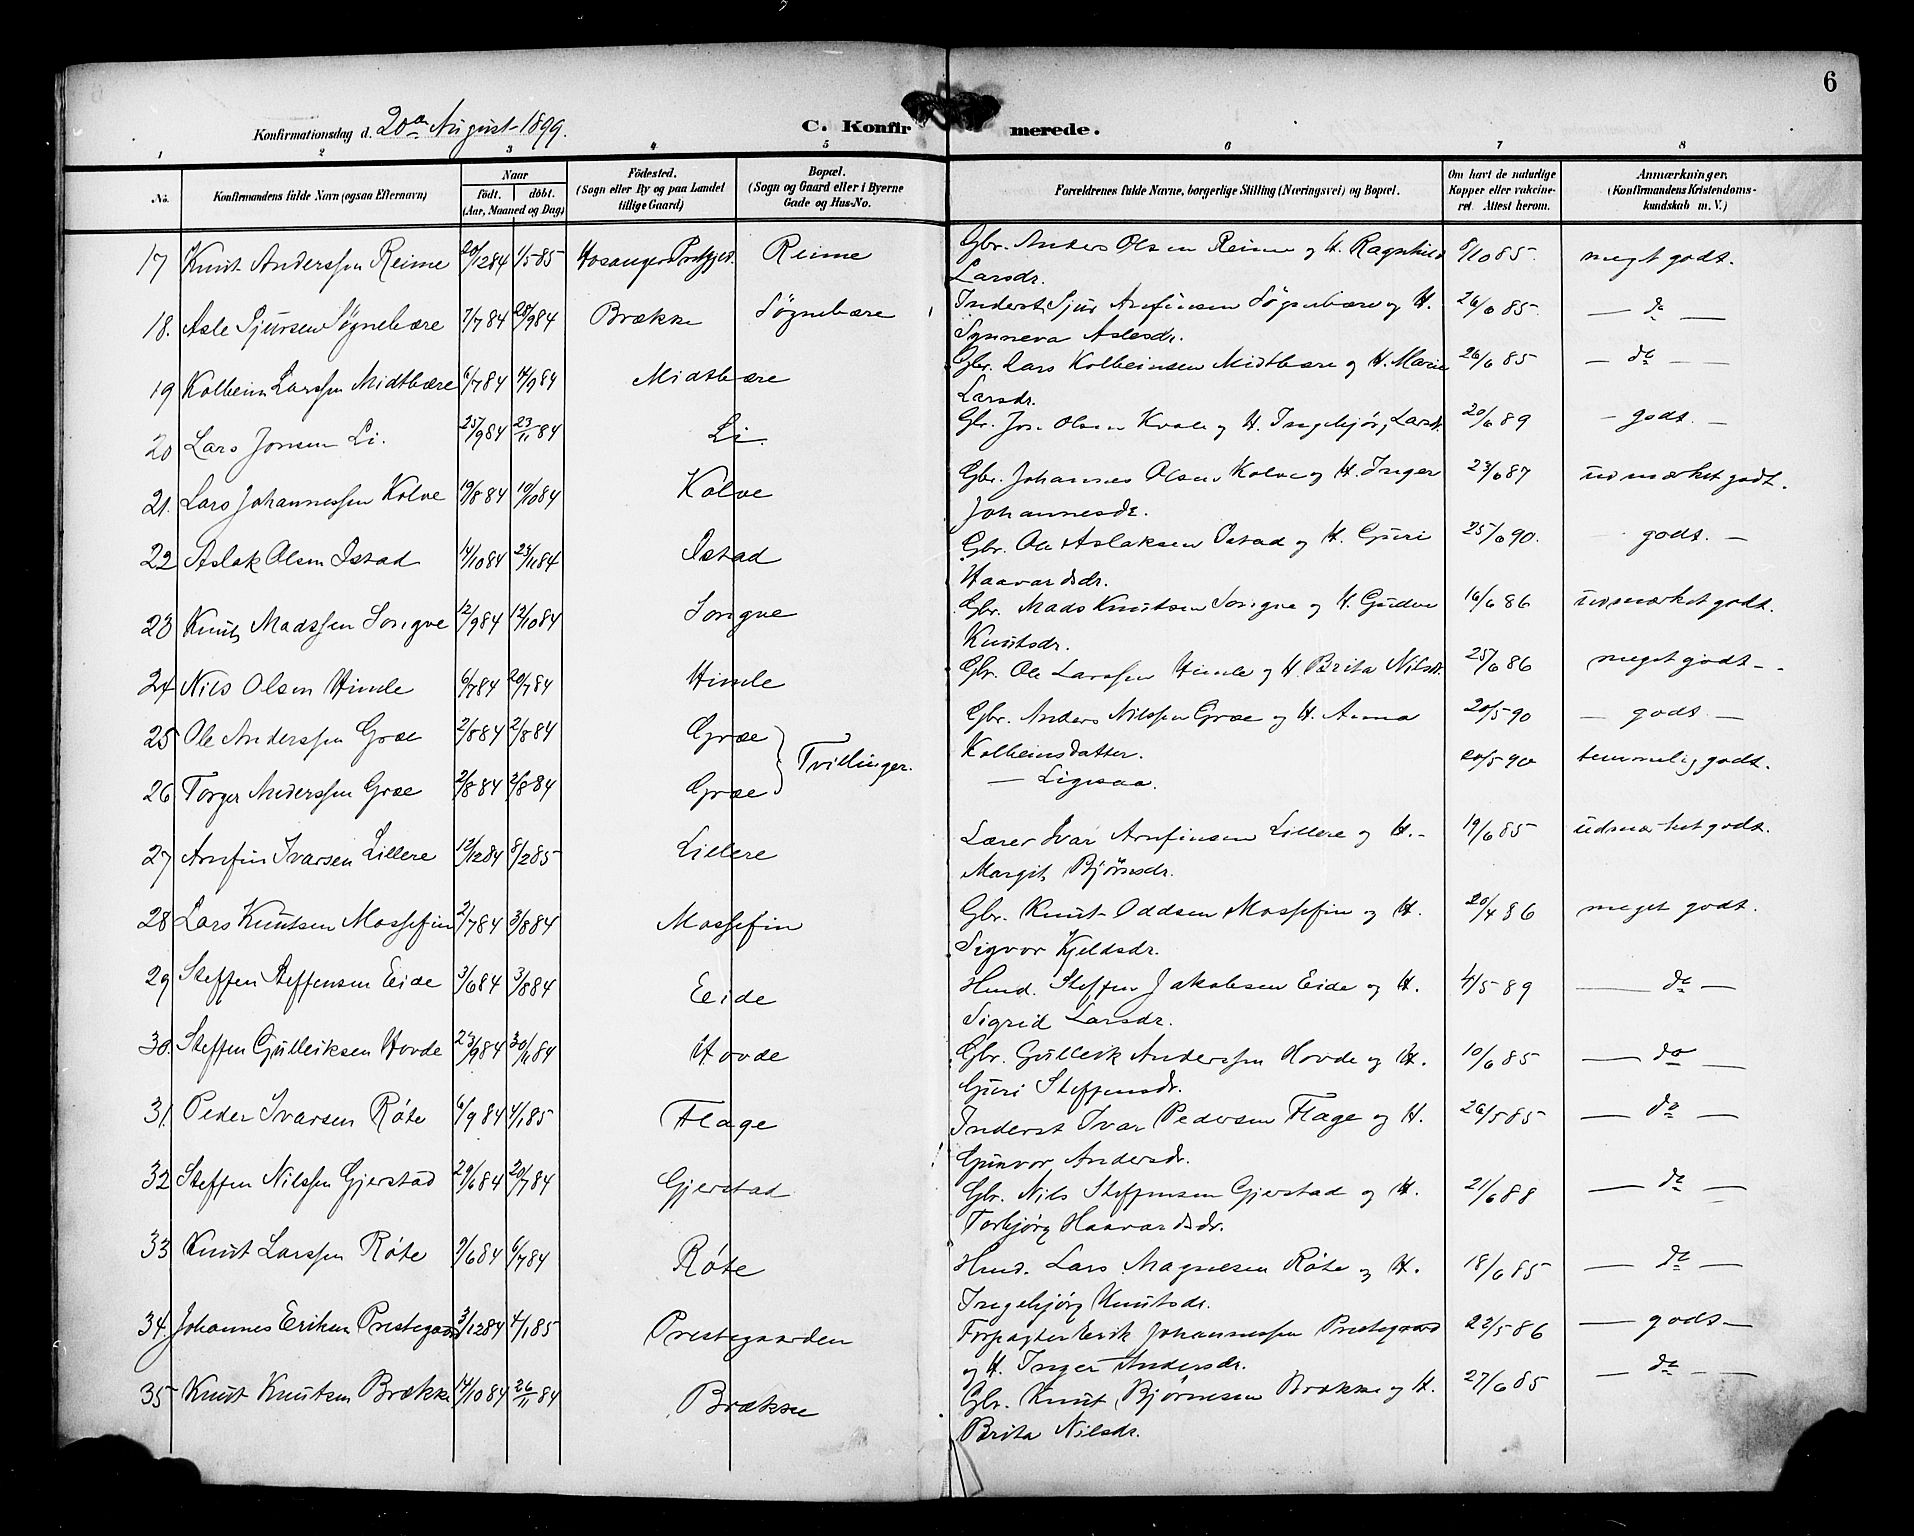 6
Konfirmationsdag d. 20de August 1899.
C. Konfirmerede.
1 2 3 4 5 6 7 8
No. Konfirmandens fulde Navn (ogsaa Efternavn) Naar født. døbt. (Aar, Maaned og Dag) Fødested. (Sogn eller By og paa Landet tillige Gaard) Bopæl. (Sogn og Gaard eller i Byerne Gade og Hus-No. Forældrenes fulde Navne, borgerlige Stilling (Næringsvei) og Bopæl. Om havt de naturlige Kopper eller vakcineret. Attest herom. Anmærkninger. (Konfirmandens Kristendomskundskab m. V.)
17 Knut Anderssen Reime 20/12 84 1/5 85 Hosanger Prstgjd. Reime Gbr. Anders Olsen Reime og H. Ragnhild 9/10 85. megt godt.
Larsdr.
18. Asle Sjursen Søgnebære 7/7 84 28/9 84 Brække Søgnebære Inderst Sjur Arnfinsen Søgnebære og H. 26/6 85. — do —
Synneva Aslesdr.
19 Kolbein Larssen Midtbære 6/7 84 14/9 84 Midtbære Gbr. Lars Kolbeinsen Midtbære og H. Marie 26/6 85 — do —
Larsdr.
20 Lars Jonsen Li. 25/9 84 23/11 84 Li. Gbr. Jon Olsen Kvale og H. Ingebjør, Larsd. 20/6 89 — godt. —
21. Lars Johannessen Kolve 19/8 84 19/10 84 Kolve Gbr. Johannes Olsen Kolve og H. Inger 23/6 87 udmærket godt.
Johannesdr.
22 Aslak Olsen Istad 14/10 84 23/11 84 Istad Gbr. Ole Aslaksen Istad og H. Guri 25/6 90. godt. —
Haavardsdr.
23 Knut Madssen Sonigve 12/9 84 12/10 84 Sonigve Gbr. Mads Knutsen Sonigve og H. Gudve 16/6 86 udmærket godt.
Knutsdr.
24 Nils Olsen Himle 6/7 84 20/7 84 Himle Gbr. Ole Larssen Himle og H. Brita Nilsdr. 25/6 86 meget godt — .
25 Ole Anderssen Groe 2/8 84 2/8 84 Groe Gbr. Anders Nilssen Groe og H. Anna 20/5 90 — godt. —
Tvillinger. Kolbeinsdatter.
26 Torger Anderssen Groe 2/8 84 2/8 84 Groe — Ligesaa. 20/5 90 temmelig godt.
27 Arnfin Ivarsen Lillere 12/12 84 8/2 85 Lillere Lærer Ivar Arnfinsen Lillere og H. 19/6 85 udmærket godt.
Margit Bjørnsdr.
28 Lars Knutsen Mossefin 2/7 84 3/8 84 Mossefin Gbr. Knut Oddsen Mossefin og H. 20/4 86 meget godt.
Sigvor Kjeldsdr.
29 Steffen Steffensen Eide 3/6 84 3/8 84 Eide Hmd. Steffen Jakobsen Eide og H. 4/5 89 — do —
Sigrid Larsdr.
30. Steffen Gulleiksen Hovde 23/9 84 30/11 84 Hovde Gbr. Gulleik Anderssen Hovde og H. 10/6 85 — do —
Guri Steffensdr.
31. Peder Ivarsen Røte 6/9 84 4/1 85 Flage Inderst Ivar Pedersen Flage og H. 26/5 85 — do —
Gunvor Andersdr.
32 Steffen Nilssen Gjerstad 29/6 84 20/7 84 Gjerstad Gbr. Nils Steffensen Gjerstad og H. 21/6 88 — do —
Torbjørg Haavardsdr.
33 Knut Larssen Røte 9/6 84 6/7 84 Røte Hmd. Lars Magnesen Røte og H. 18/6 85 — do —
Ingebjørg Knutsdr.
34. Johannes Eriksen Prestegaard 3/12 84 4/1 85 Prestegaarden Forpagter Eerik Johannessen Prestegaard 22/5 86 — godt —
og H. Inger Andersdr.
35 Knut Knutsen Brække 14/10 84 26/11 84 Brække Gbr. Knut Bjørnesen Brække og H. 27/6 85 — do —
Brita Nilsdr.